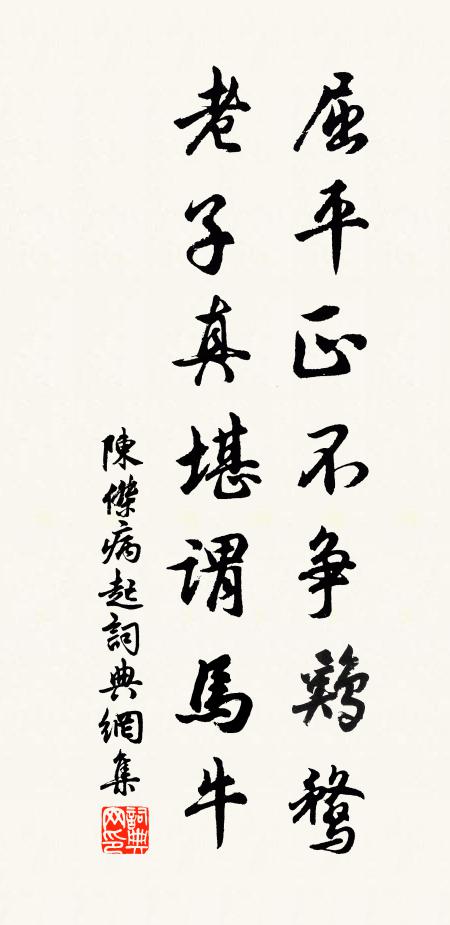 屈平正不争鷄鶩
老子真堪谓馬牛
陳傑病起詞典網集
詞典网印